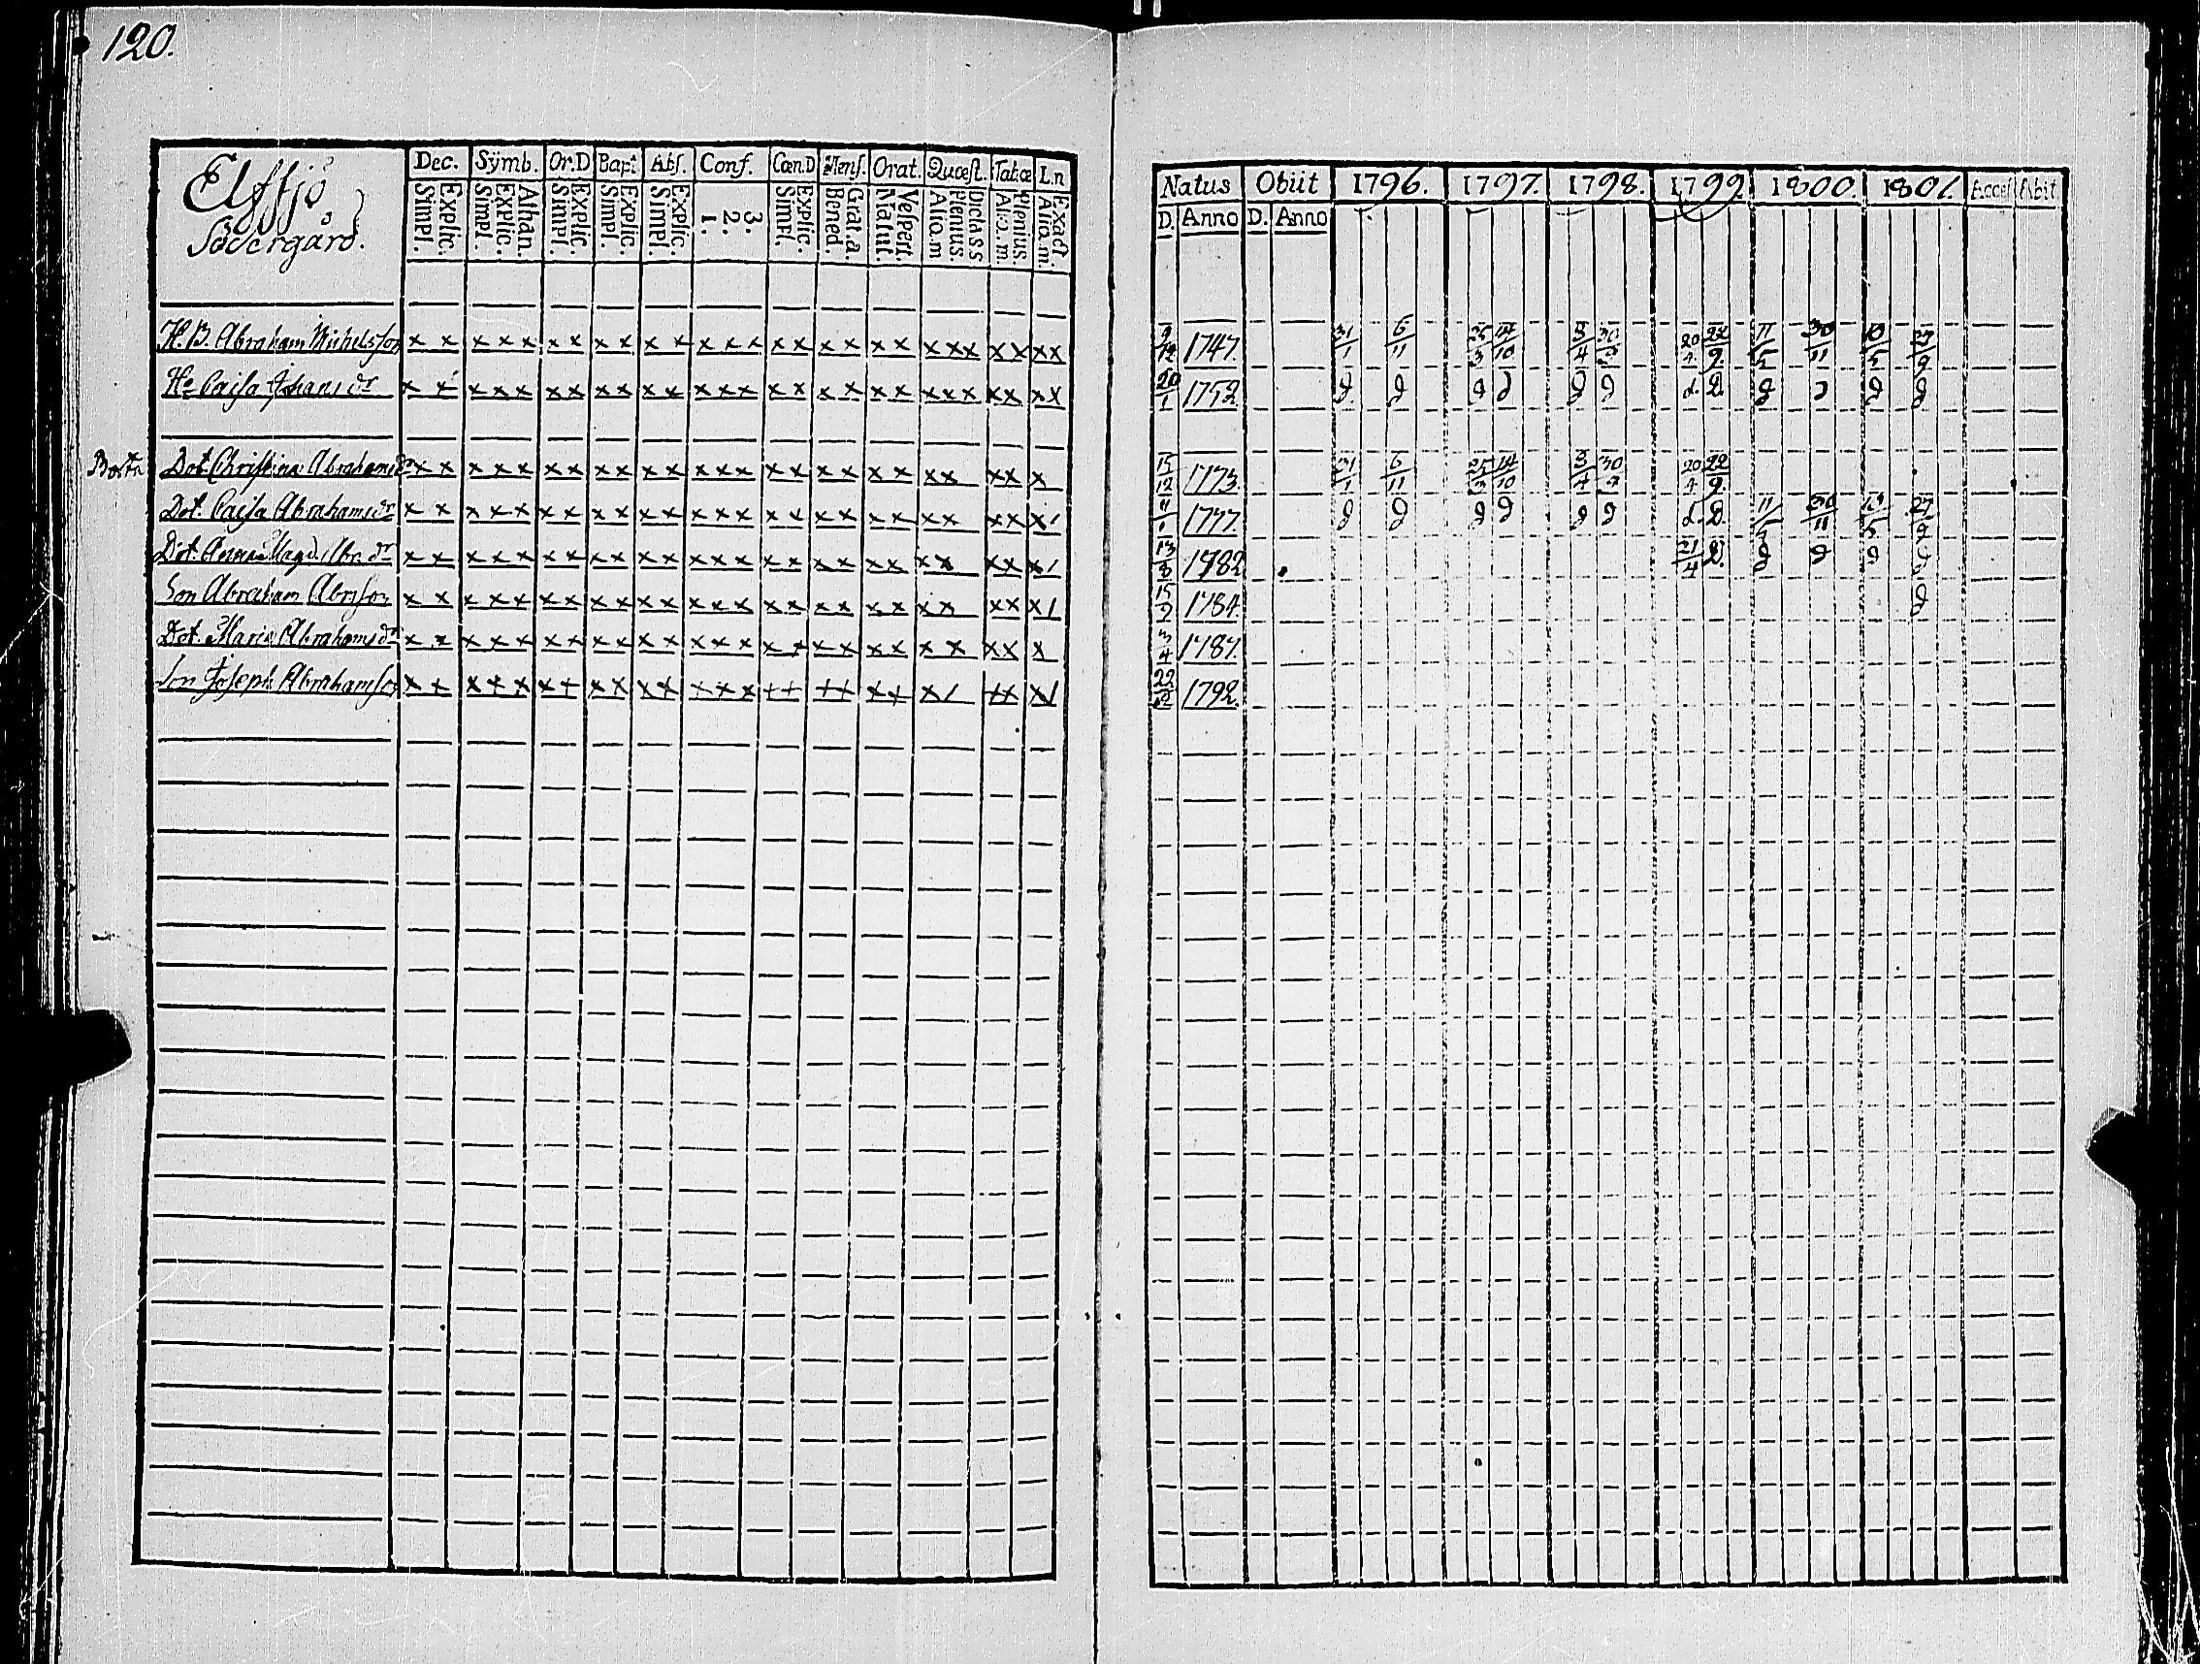 120.
Elffjö
Södergård.
Dec. Sÿmb. Or.D Bapt Abſ. Conf. Cœn.D Menſ. Orat. Quœſt. Tab.œ L.n
Explic. Simpl. Athan. Explic. Simpl. Explic. Simpl. Explic. Simpl. Explic. Simpl. 3. 2. 1. Explic. Simpl. Grat.a. Bened. Veſpert. Matut. Dicta SS Plenius. Aliq.m Plenius. Aliq.m Exact Aliq.m.
H.B. Abraham Michelsſon x x x x x x x x x x x x x x x x x x x x x x x x x x x
H. Caiſa Johans dr x x x x x x x x x x x x x x x x x x x x x x x x x x x
Dot. Chriſtina Abrahamsdr x x x x x x x x x x x x x x x x x x x x x x x x x
Dot. Caiſa Abrahamsdr x x x x x x x x x x x x x x x x x x x x x x x x x /
Dot. Anna Magd. Abr. dr x x x x x x x x x x x x x x x x x x x x x x x x x /
Son Abraham Abrſſon x x x x x x x x x x x x x x x x x x x x x x x x x /
Dot. Maria Abrahamsdr x x x x x x x x x x x x x x x x x x x x x x x x x
Son Joſeph Abrahamſon x x x x x x x x x x x x x x x x x x x x x / x x x /
Natus Obiit 1796. 1797. 1798. 1799. 1800. 1801. Acceſ Abit
D. Anno D. Anno
9/12 1747. 31/1 6/11 25/3 14/10 5/4 30/9 20/4 22/9. 11/5 30/11 10/5 27/9
20/1 1752
15/12 1773. 31/1 6/11 25/3 14/10 5/4 30/9 20/4 22/9.
1777. 11/5 30/11 27/9
13/8 1782 21/4
15/2 1784.
3/4 1787.
22/12 1792.